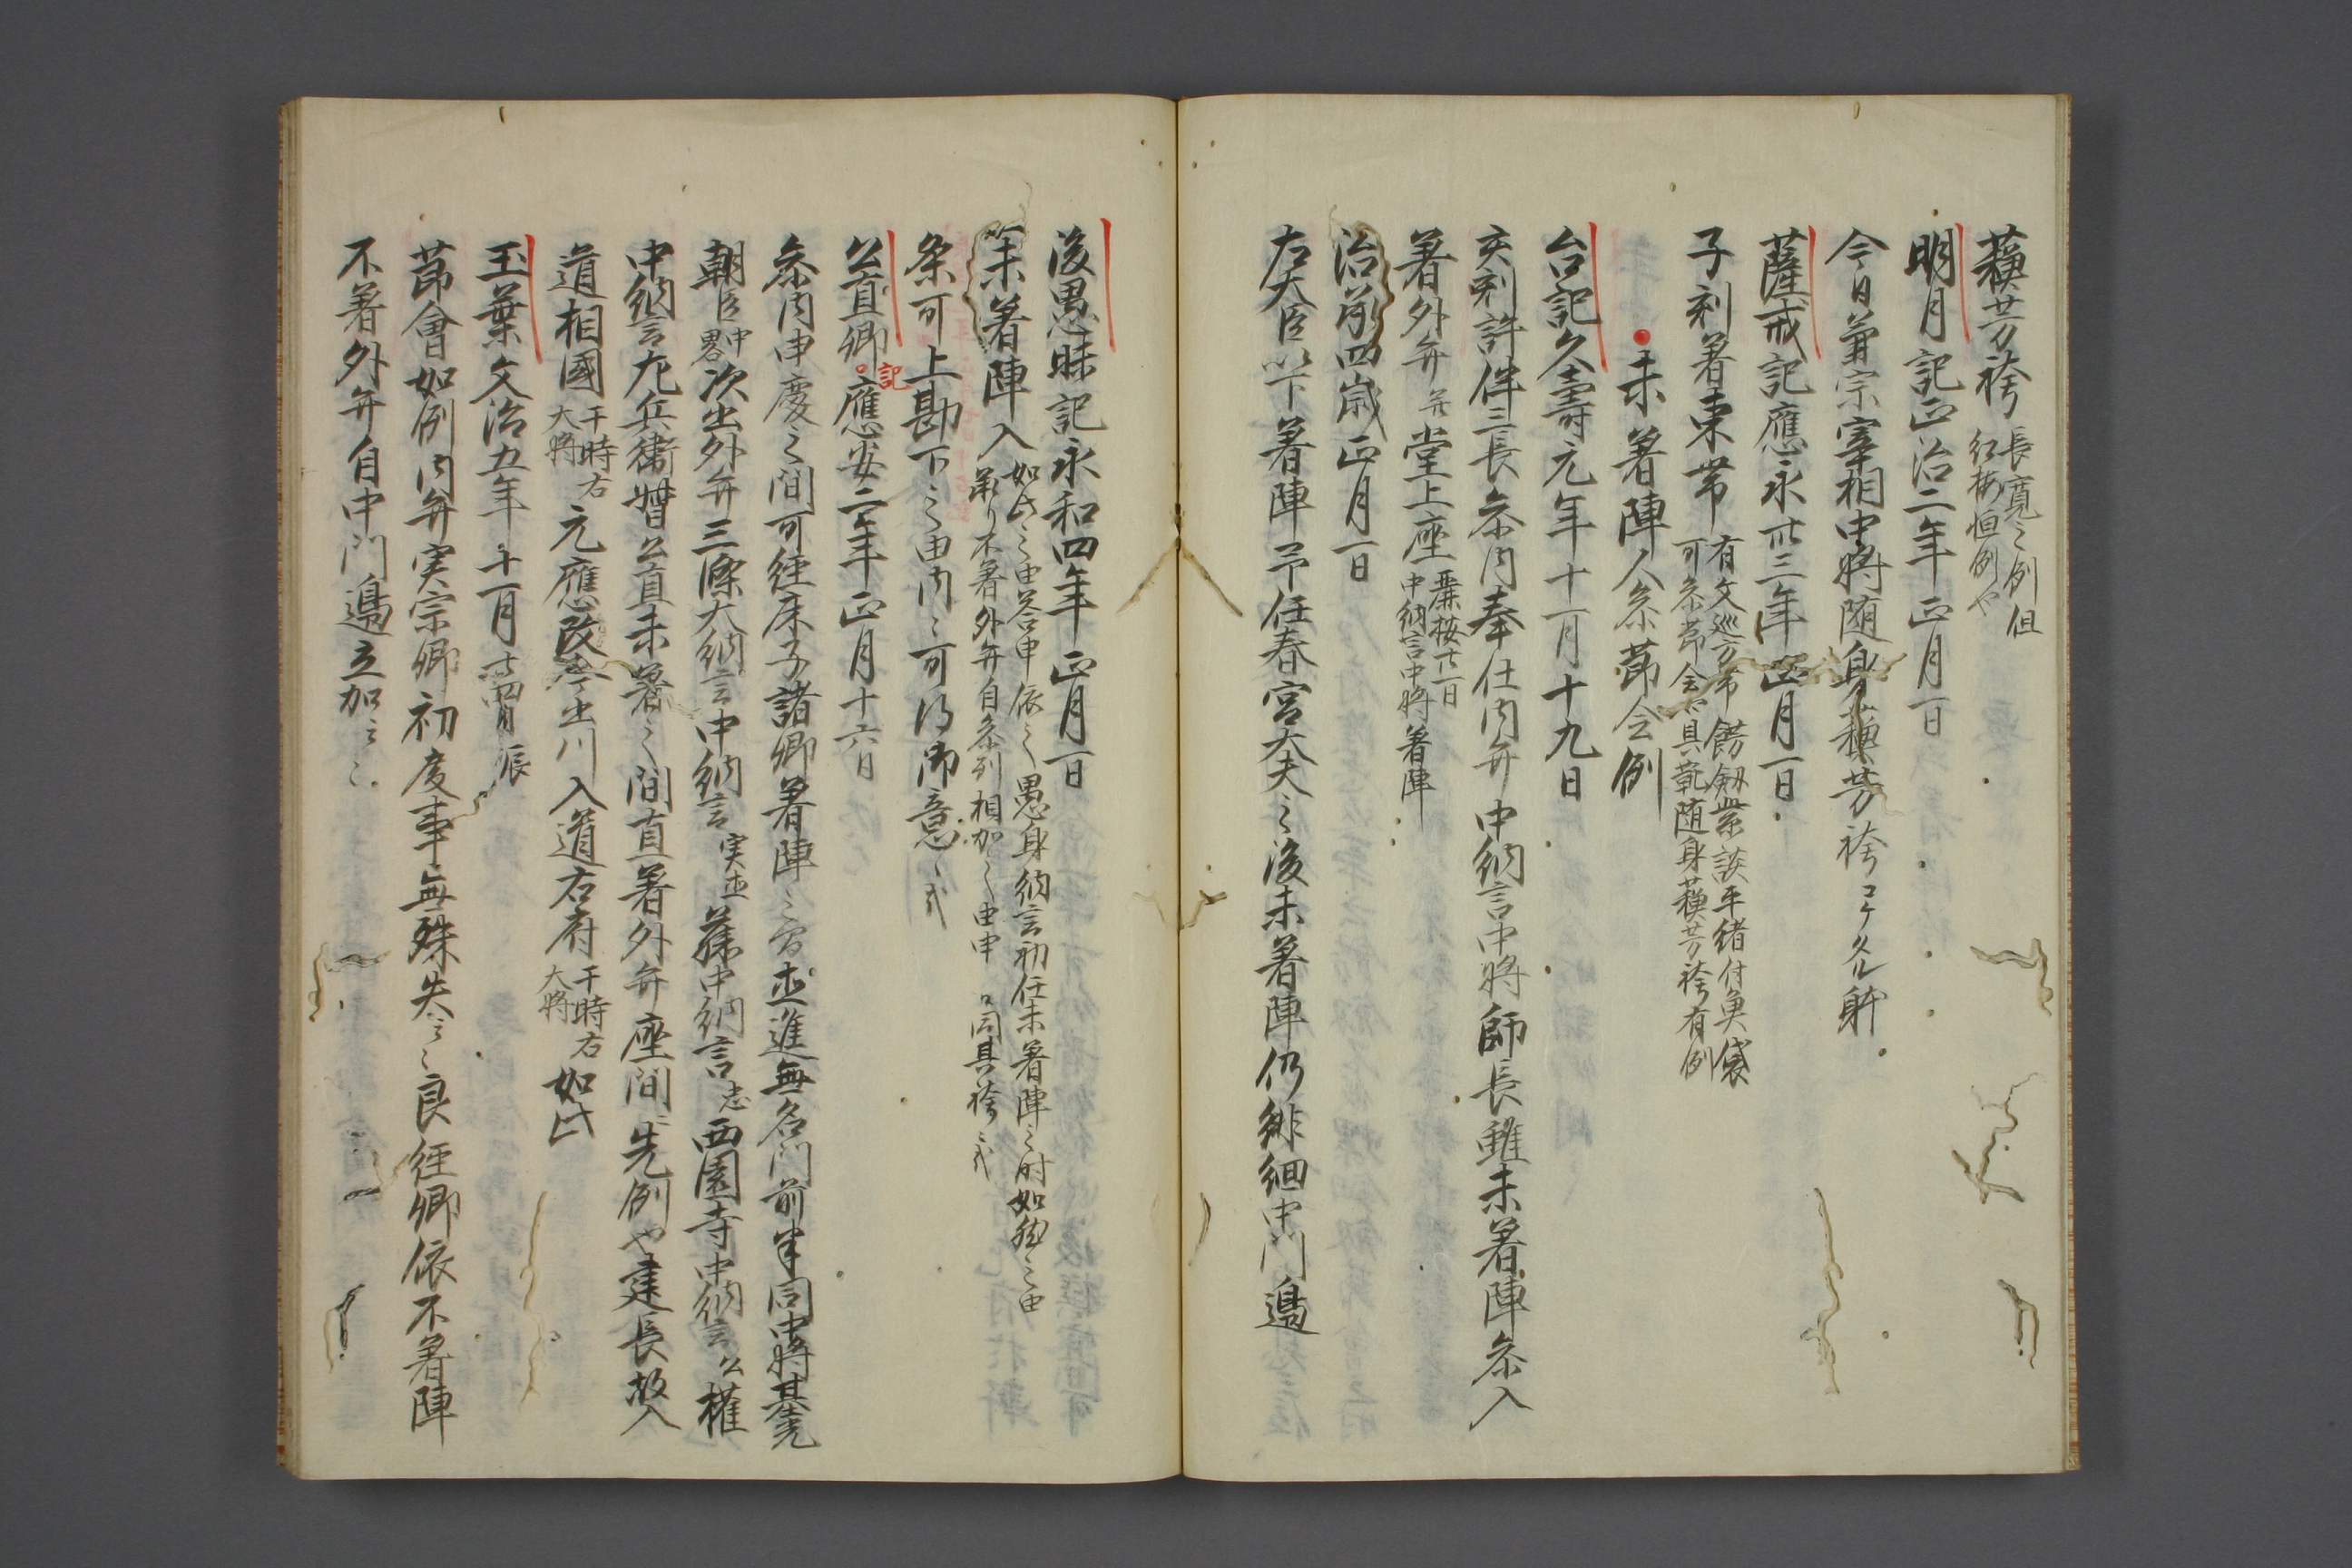 蘓芳袴 長寛之例但
紅梅恒例や
明月記正治二年正月一日
今日兼宗宰相中将随身蘓芳袴
薩戒記應永卅三年正月一日
子刻著束帯 有文巡方帯餝劔紫談平緒付魚袋
可参節会 具靴随身蘓芳袴有例
未著陣人参節会例
台記久壽元年十一月十九日
亥刻許伴三長参内奉仕内弁中納言中将師長雖未著陣参入
著外弁并堂上座 兼按廿一日
中納言中将著陣
治承四歳正月一日
左大臣以下著陣予任春宮大夫之後未著陣仍徘徊中門邉
後愚昧記永和四年正月一日
未著陣入 如此之由答申依之愚身納言初任未著陣之時如然之由
不著外弁自参列相加之由申 同具袴
条可上勘下之由内々可得御意
公直卿記應安二年正月十六日
参内申慶之間可経床子諸卿著陣之間並進無名門前半同中将基光
朝臣 中畧 次出外弁三條大納言中納言 実 藤中納言 忠 西園寺中納言 公 権
中納言左兵衛督公直未著之間直著外弁座間先例や建長故入
道相國 于時右
大将 元應改 出川入道右府 于時右
大将 如此
玉葉文治五年十一月 辰
節會如例内弁実宗卿初度事無殊失云々良経卿依不著陣
不著外弁自中門邉立加云々